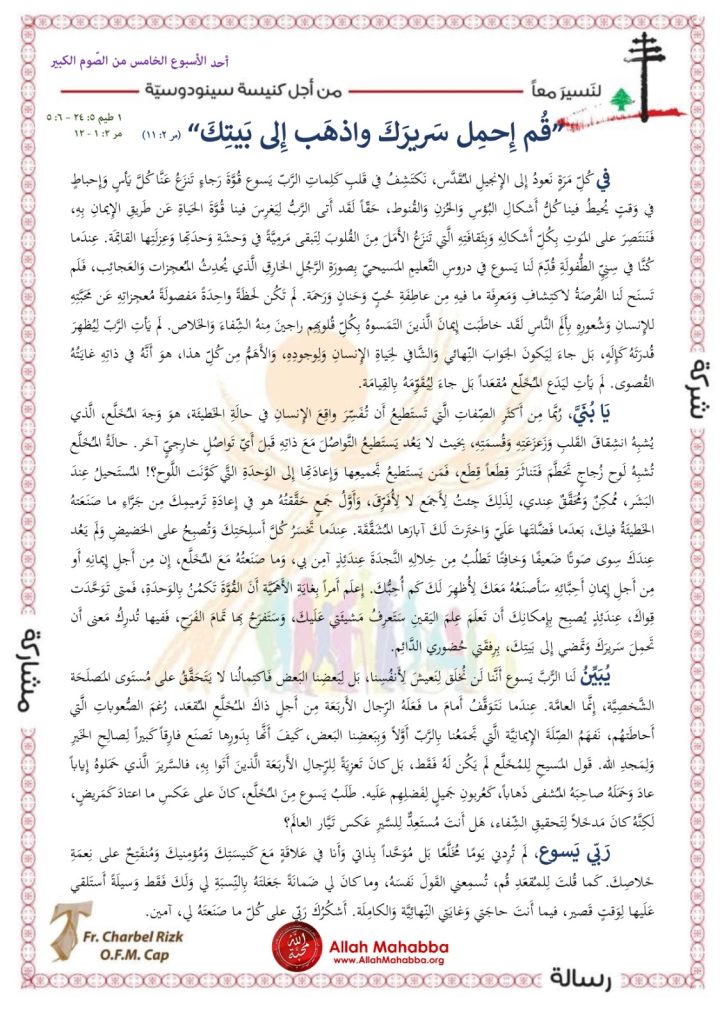 أحد الأسبوع الخامس من الصّوم الكبير
لنَسيرَ معاً
من أجل كنيسة سينودوسيّة
١ طيم ٥: ٢٤ - ٦: ٥
مر ٢: ١ - ١٢
”قُم إِحمِل سَريرَكَ واذهَب إِلى بَيتِكَ“ (مر ٢: ١١)
في كُلِّ مَرَةٍ نَعودُ إلى الإنجيلِ المُقَدَّس، نَكتَشِفُ في قَلبِ كَلِماتِ الرَّبِّ يَسوع قُوَّةَ رَجاءٍ تَنزَعُ عَنَّا كُلَّ يَأسٍ وَإحباطٍ
في وَقتٍ يُحيطُ فينا كُلُّ أشكالِ البُؤسِ وَالحُزنِ وَالقُنوط، حَقّاً لَقَد أتى الرَّبُّ لِيَغرِسَ فينا قُوَّةَ الحَياةِ عَن طَريقِ الإيمانِ بِهِ،
فَنَنتَصِرَ على المَوتِ بِكُلِّ أشكالِهِ وَبِثَقافَتِهِ الَّتي تَنزَعُ الأمَلَ مِنَ القُلوبَ لِتَبقى مَرمِيَّةً في وَحشَةِ وَحدَتِها وَعِزلَتِها القاتِمَة. عِندَما
كُنَّا في سِنِيِّ الطُّفولَةِ قُدِّمَ لَنا يَسوع في دروسِ التَّعليمِ المَسيحيّ بِصورَةِ الرَّجُلِ الخارِقِ الَّذي يُحدِثُ المُعجِزات وَالعَجائِب، فَلَم
تَسنَح لَنا الفُرصَةُ لاكتِشافِ وَمَعرِفَة ما فيهِ مِن عاطِفَةِ حُبٍّ وَحَنانٍ وَرَحمَة. لَم تَكُن لَحظَةً واحِدَةً مَفصولَةً مُعجِزاتِهِ عَن مَحَبَّتِهِ
للإنسانِ وَشُعورِهِ بِأَلَمِ النَّاسِ لَقَد خاطَبَت إيمانَ الَّذينَ التَمَسوهُ بِكُلِّ قُلوبِهِم راجينَ مِنهُ الشِّفاءَ وَالخَلاص. لَم يَأتِ الرَّبّ لِيُظهِرَ
قُدرَتَهُ كَإلَهٍ، بَل جاءَ لِيَكونَ الجَوابَ النِّهائي وَالشَّافي لِحَياةِ الإنسانِ وَلِوجودِهِ، وَالأهَمُّ مِن كُلِّ هذا، هوَ أنَّهُ في ذاتِهِ غايَتُهُ
القُصوى. لَم يَأتِ لِيَدَع المُخَلَّع مُقعَداً بَل جاءَ لِيُقَوِّمَهُ بِالقِيامَة.
يَا بُنَيَّ، رُبَّما مِن أكثَرِ الصِّفاتِ الَّتي تَستَطيعُ أن تُفَسِّرَ واقِعَ الإنسانِ في حالَةِ الخَطيئَة، هوَ وَجهُ المُخَلَّع، الَّذي
يُشبِهُ انشِقاقَ القَلبِ وَزَعزَعَتِهِ وَقُسمَتِهِ، بِحَيث لا يَعُد يَستَطيعُ التَّواصُلَ مَعَ ذاتِهِ قَبلَ أيِّ تَواصُلٍ خارِجيٍّ آخَر. حالَةُ المُخَلَّع
تُشبِهُ لَوح زُجاجٍ تَحَطَّمَ فَتَناثَرَ قِطَعاً قِطَع، فَمَن يَستَطيعُ تَجميعِها وَإعادَتِها إلى الوَحدَةِ التَّي كَوَّنَت اللَّوح؟! المُستَحيلُ عِندَ
البَشَر، مُمكِنٌ وَمُحَقَّقٌ عِندي، لِذَلِكَ جِئتُ لِأجمَعَ لا لِأُفَرِّقَ، وَأوَّلُ جَمعٍ حَقَّقتُهُ هو في إعادَةِ تَرميمِكَ مِن جَرَّاءِ ما صَنَعَتهُ
الخَطيئَةُ فيكَ، بَعدَما فَضَّلتَها عَلَيّ وَاختَرتَ لَكَ آبارَها المُشَقَّقَة. عِندَما تَخسَرُ كُلَّ أسلِحَتِكَ وَتُصبِحُ على الحَضيضِ وَلَم يَعُد
عِندَكَ سِوى صَوتًا ضَعيفًا وَخافِتًا تَطلُبُ مِن خِلالِهِ النَّجدَةَ عِندَئِذٍ آمِن بي، وَما صَنَعتُهُ مَعَ المُخَلَّع، إن مِن أجلِ إيمانِهِ أو
مِن أجلِ إيمانِ أحِبَّائِهِ سَأصنَعُهُ مَعَكَ لِأُظهِرَ لَكَ كَم أُحِبُّكَ. إعلَم أمراً بِغايَةِ الأهَمِّيَّة أنَّ القُوَّةَ تَكمُنُ بِالوَحدَةِ، فَمَتى تَوَحَّدَت
قِواكَ، عِندَئِذٍ يُصبِح بِإمكانِكَ أن تَعلَمَ عِلمَ اليَقين سَتَعرِفُ مَشيئَتي عَلَيكَ، وَسَتَفرَحُ بها تَمامَ الفَرَحِ، فَفيها تُدرِكُ مَعنى أن
تَحمِلَ سَريرَكَ وَتَمضي إلى بَيتِكَ، بِرِفقَتي حُضوري الدَّائِم.
يُبَيِّنُ لَنا الرَّبُّ يَسوعَ أنَّنا لَن نُخلَق لِنَعيشَ لأنفُسِنا، بل لِبَعضِنا البَعض فَاكتِمالُنا لا يَتَحَقَّقُ على مُستَوى المَصلَحَة
الشَّخصِيَّة، إنَّما العامَّة. عِندَما نَتَوَقَّفُ أمامَ ما فَعَلَهُ الرِّجال الأربَعَة مِن أجلِ ذاكَ المُخَلَّعِ المُقعَد، رُغمَ الصُّعوباتِ الَّتي
أحاطَتهُم، نَفهَمُ الصِّلَةَ الإيمانِيَّة الَّتي تَجمَعُنا بِالرَّبّ أوَّلاً وَبِبَعضِنا البَعض، كَيفَ أنَّها بِدَورِها تَصنَع فارِقاً كَبيراً لِصالِحِ الخَيرِ
وَلِمَجدِ الله. قَول المَسيحِ لِلمُخَلَّعِ لَم يَكُن لَهُ فَقَط، بَل كانَ تَعزِيَةً لِلرِّجالِ الأربَعَة الَّذينَ أتَوا بِهِ، فَالسَّريرَ الَّذي حَمَلوهُ إياباً
عادَ وَحَمَلَهُ صاحِبَهُ المُشفى ذَهاباً، كَعُربونِ جَميلٍ لِفَضلِهِم عَلَيه. طَلَبُ يَسوعَ مِنَ المُخَلَّع، كانَ على عَكسِ ما اعتادَ كَمَريضٍ،
لَكِنَّهُ كانَ مَدخَلاً لِتَحقيقِ الشِّفاء، هَل أنتَ مُستَعِدٌّ لِلسَّيرِ عَكس تَيَّارِ العالَم؟
رَبّي يَسوع، لَم تُرِدني يَومًا مُخَلَّعًا بَل مُوَحَّداً بِذاتي وَأنا في عَلاقَةٍ مَعَ كَنيسَتِكَ وَمُؤمِنيكَ وَمُنفَتِحٌ على نِعمَةِ
خَلاصِكَ. كَما قُلتَ لِلمُقعَدِ قُم، تُسمِعني القَولَ نَفسَهُ، وَما كانَ لي ضَمانَةً جَعَلتَهُ بِالنِّسبَةِ لي وَلَكَ فَقَط وَسيلَةً أستَلقي
عَلَيها لِوَقتٍ قَصير، فيما أنتَ حاجَتي وَغايَتي النِّهائِيَّة وَالكامِلَة. أشكُرُكَ رَبّي على كُلِّ ما صَنَعتَهُ لي، آمين.
شركة
مشاركة
رسالة
Fr. Charbel Rizk
O.F.M. Cap
الله محبة
Allah Mahabba
www.AllahMahabba.org